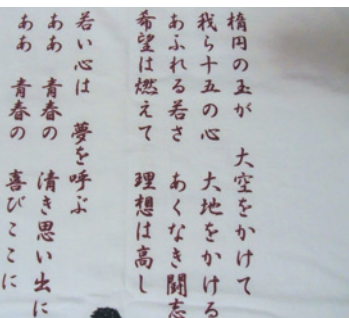 楕円の玉が 大空をかけて
我ら十五の心 大地をかける
あふれる若さ あくなき闘志
希望は燃えて 理想は高し
若い心は 夢を呼ぶ
ああ 青春の 清き思い出に
ああ 青春の 喜びここに